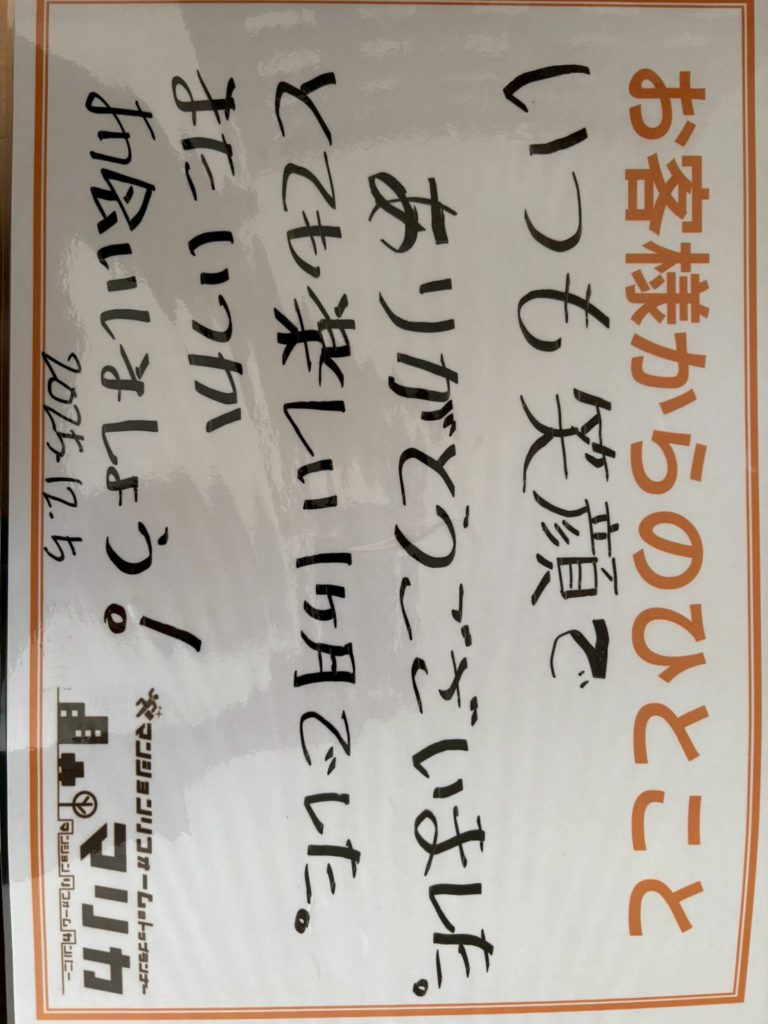 お客様からのひとこと
いつも笑顔で
ありがとうございました。
とても楽しい1ヶ月でした。
またいつか
お会いしましょう!。
2025.12.5
マンションリフォームのトップランナー
マリカ
マンションリフォームカンパニー